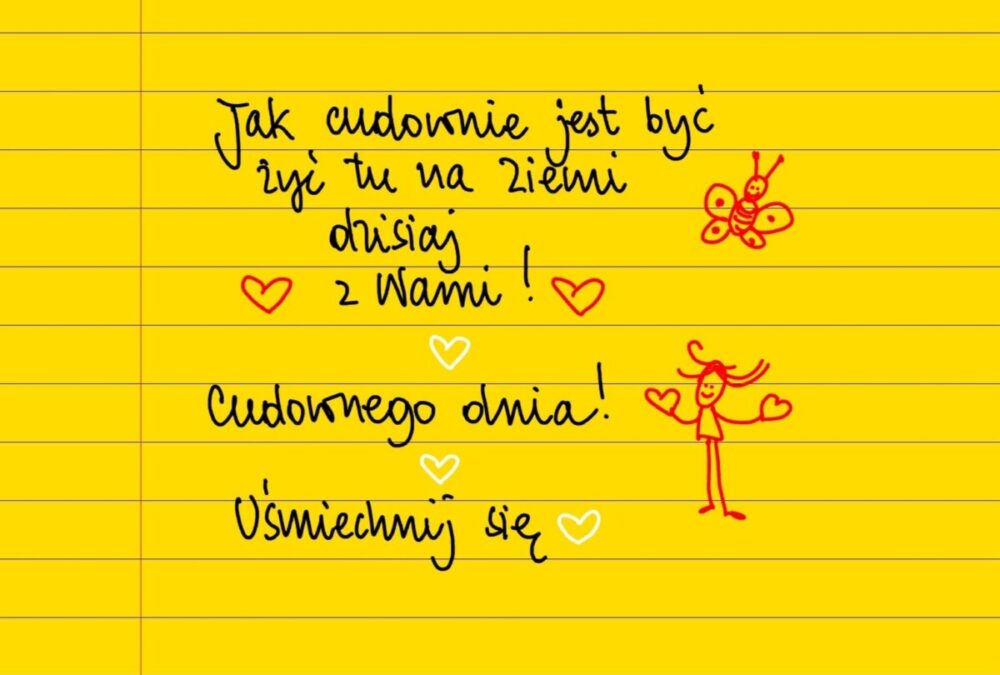 Jak cudownie jest być
żyć tu na Ziemi
dzisiaj
z Wami!
Cudownego dnia!
Uśmiechnij się